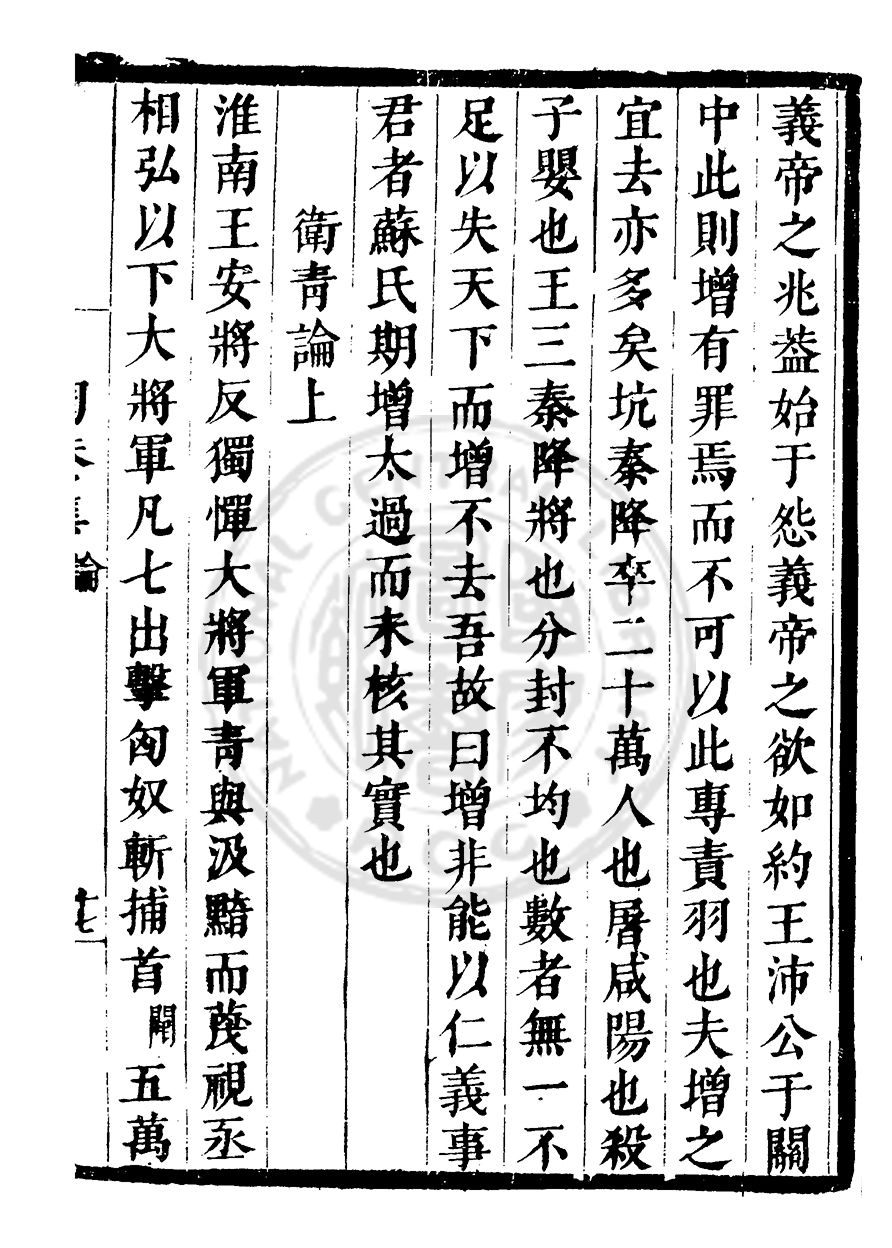 義帝之兆葢始于怨義帝之欲如約王沛公于關
中此則增有罪焉而不可以此專責羽也夫增之
宜去亦多矣坑秦降卒二十萬人也屠咸陽也殺
子嬰也王三秦降將也分封不均也數者無一不
足以失天下而增不去吾故曰增非能以仁義事
君者蘇氏期增太過而未核其實也
衛青論上
淮南王安將反獨憚大將軍青與汲黯而蔑視丞
相弘以下大將軍凡七出擊匈奴斬捕首闕五萬
論
十七
NATIONAL CENTRAL LIBRARY
R.O.C.